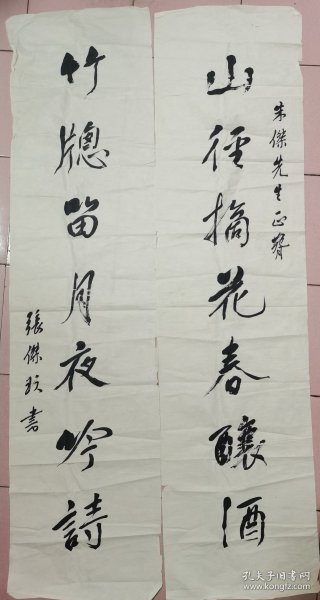 朱傑先生正
山徑摘花春釀酒
竹牕留月夜吟詩
張傑 書
孔夫子旧书网
www.kongfz.com